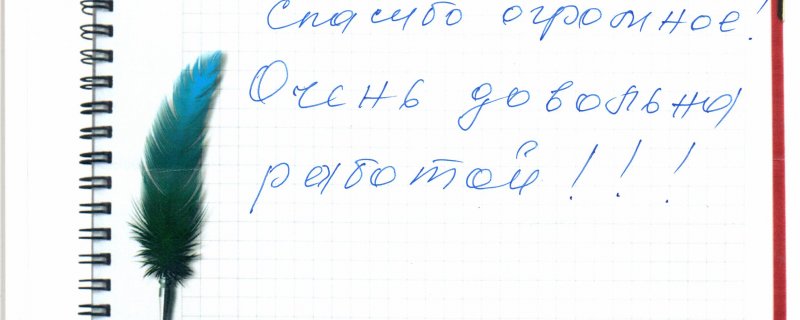 Спасибо огромное!
Очень довольна
работой!!!